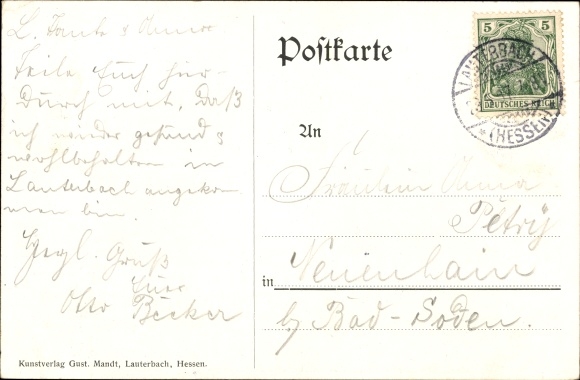 L. Tante & Anna
Teile Euch hier-
durch mit, daß
ich wieder gesund &
wohlbehalten in
Lauterbach angekom
men bin.
Hrzl. Gruß
Euer
Otto Becker
Kunstverlag Gust. Mandt, Lauterbach, Hessen.
Postkarte
5 5
DEUTSCHES REICH
LAUTERBACH
* (HESSEN)
An
Fräulein Anna
Petry
in Neuenhain
b/ Bad-Soden.